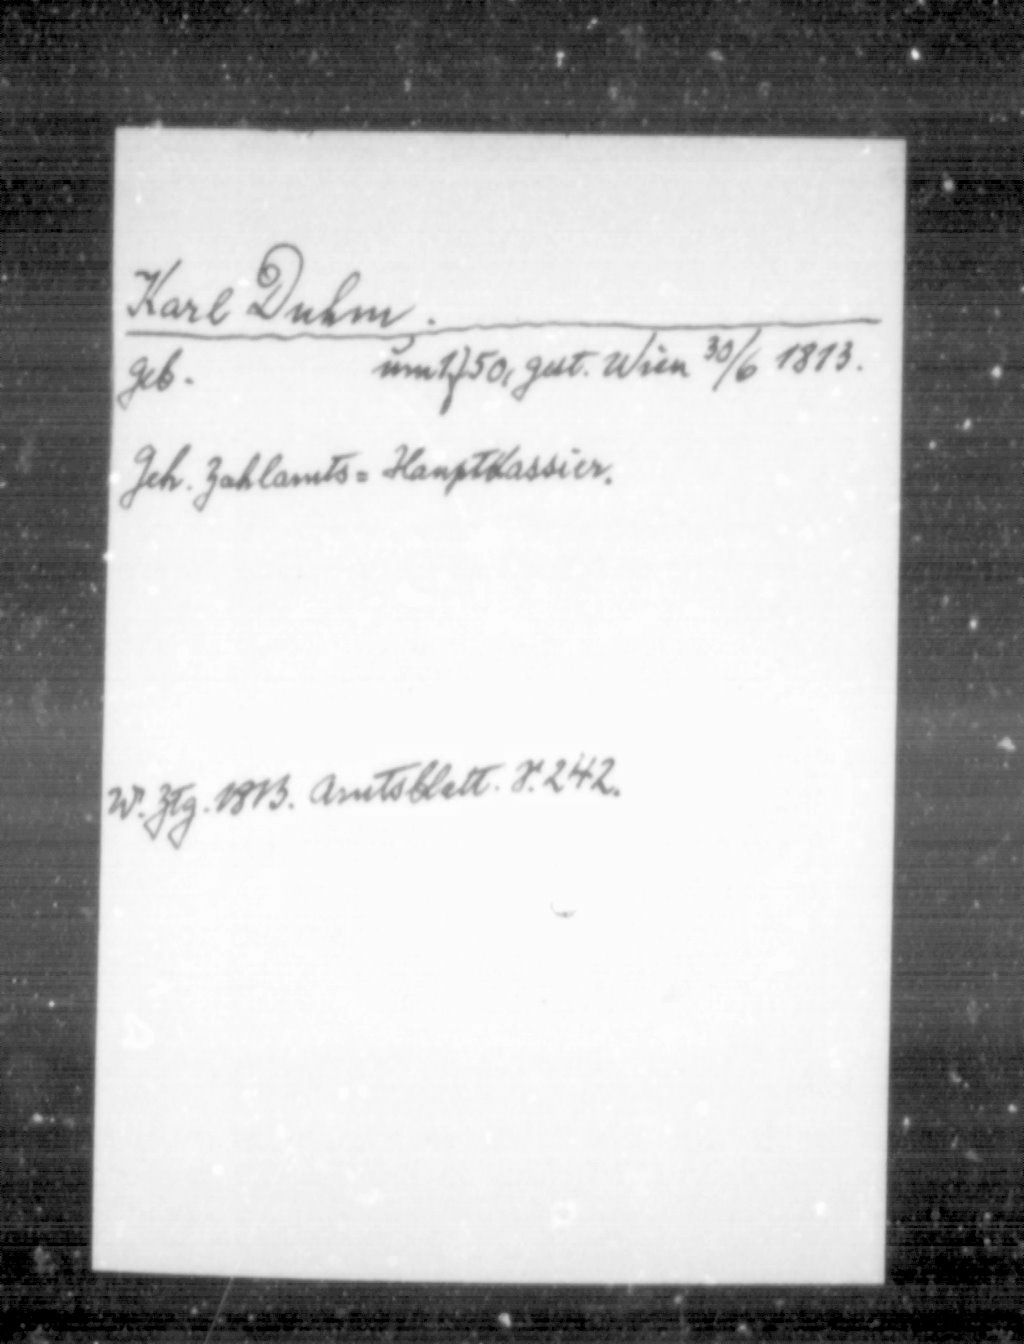 Karl Duhm.
geb. um 1750, gest. Wien 30/6 1813.
Geh. Zahlamts= Hauptkassier.
W. Ztg. 1813. Amtsblatt. S. 242.